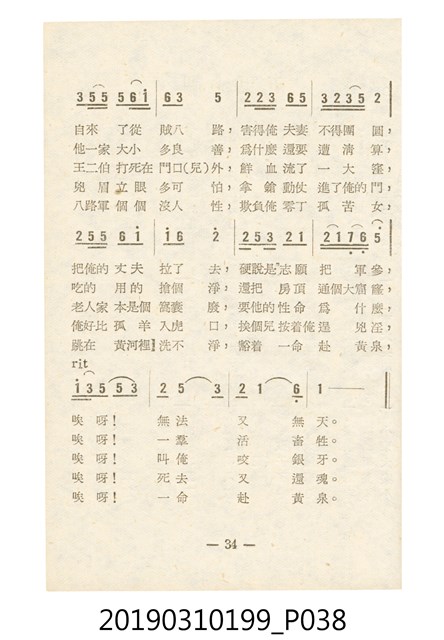 3 5 5 5 6 i 6 3 5 2 2 3 6 5 3 2 3 5 2
自來 了從 賊八 路，害得俺 夫妻 不得團 圓，
他一家 大小 多良 善，爲什麼 還要 遭清 算，
王二伯 打死在 門口(兒)外，鮮血 流了 一大 窪，
兇眉 立眼 多可 怕，拿鎗 動仗 進了俺的 門，
八路軍 個個 沒人 性，欺負俺 零丁 孤苦 女，
2 5 5 6 i i 6 2 2 5 3 2 1 2 1 7 6 5
把俺的 丈夫 拉了 去，硬說是 志願 把軍 參，
吃的 用的 搶個 淨，還把 房頂 通個大窟 窿，
老人家 本是個 窩囊 廢，要他的 性命 爲什 麼，
俺好比 孤羊 入虎 口，挨個兒 按着俺 逞兇 淫，
跳在 黃河裡 洗不 淨，豁着 一命 赴黃泉，
rit
i 3 5 5 5 3 2 5 3 2 1 6 1 —
唉呀！ 無法 又 無天。
唉呀！ 一羣 活 畜牲。
唉呀！ 叫俺 咬 銀牙。
唉呀！ 死去 又 還魂。
唉呀！ 一命 赴 黃泉。
— 34 —
20190310199_P038